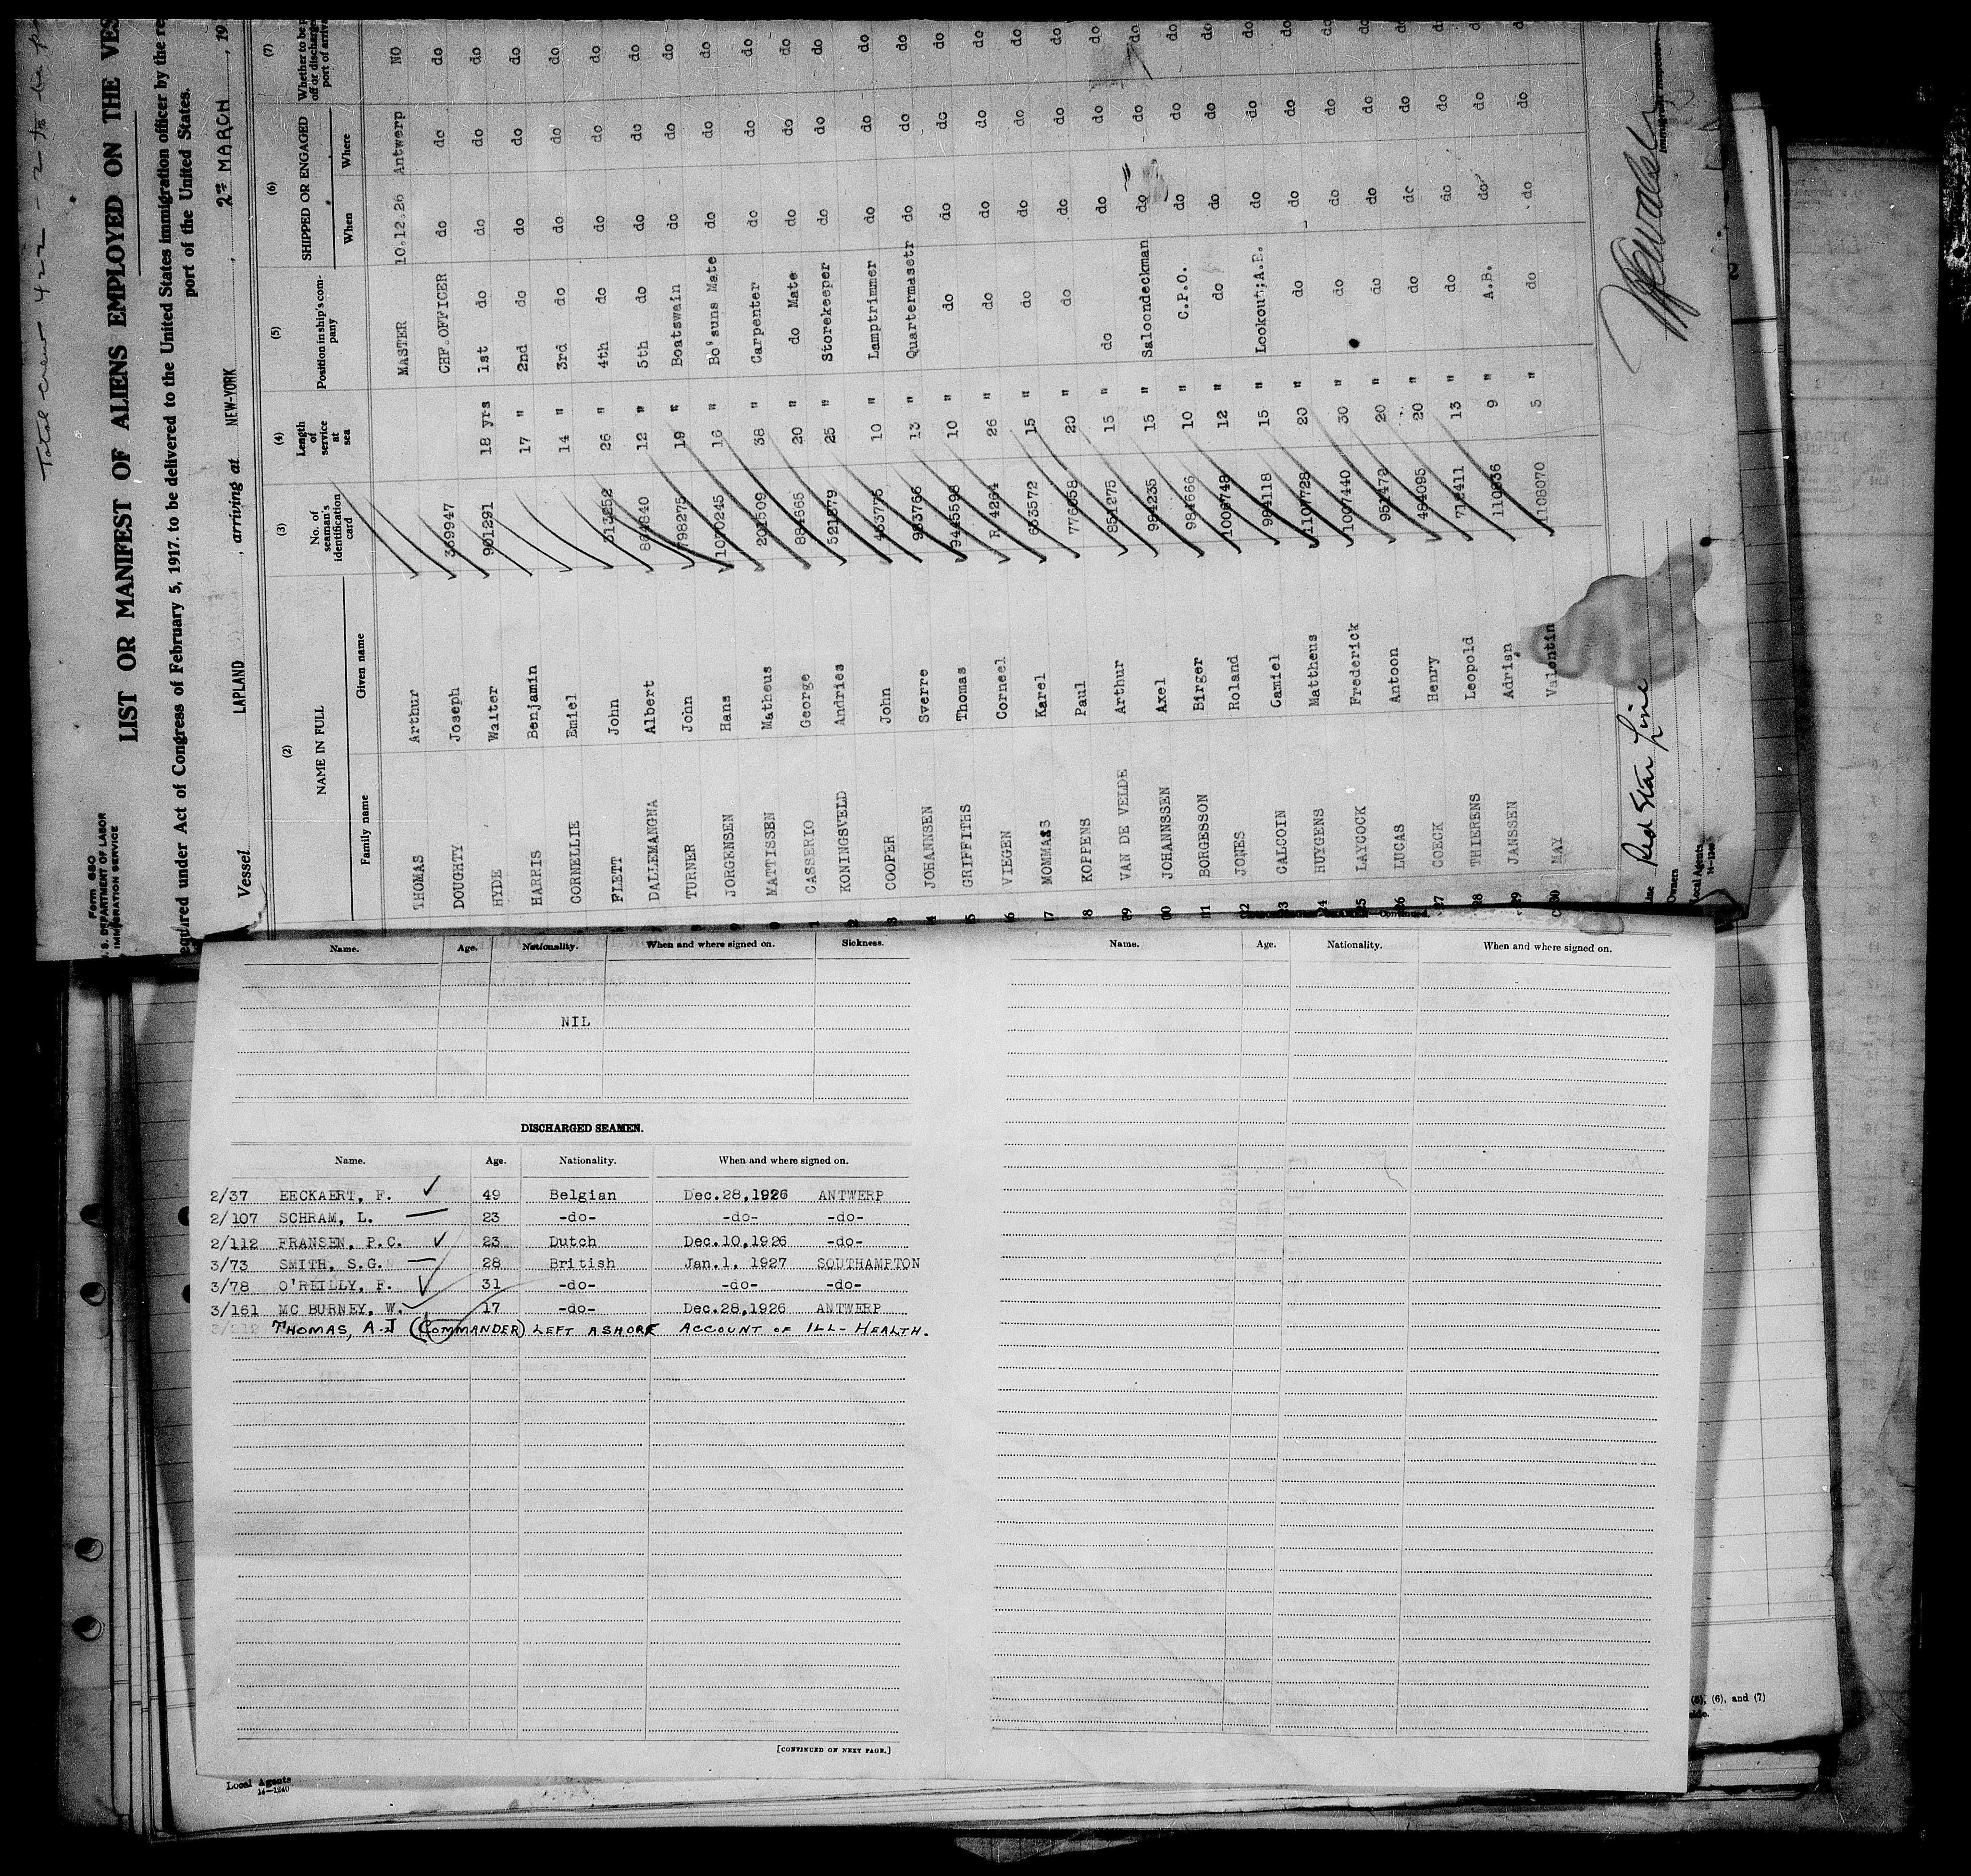 Total crew 422
Form 680
U. S. DEPARTMENT OF LABOR
IMMIGRATION SERVICE
LIST OR MANIFEST OF ALIENS EMPLOYED ON THE VES
equired under Act of Congress of February 5, 1917, to be delivered to the United States immigration officer by the re
port of the United States.
Vessel LAPLAND , arriving at NEW-YORK , 2nd MARCH , 19
(2) (3) (4) (5) (6) (7)
NAME IN FULL No. of seaman's identification card Length of service at sea Position in ship's company SHIPPED OR ENGAGED Whether to be off or discharge port of arriva
Family name Given name When Where
THOMAS Arthur MASTER 10.12.26 Antwerp NO
DOUGHTY Joseph 339947 CHF.OFFICER do do do
HYDE Walter 991291 18 yrs 1st do do do do
HARRIS Benjamin 17 " 2nd do do do do
CORNELLIE Emiel 14 " 3rd do do do do
FLETT John 513252 26 " 4th do do do do
DALLEMANGNA Albert 864840 12 " 5th do do do do
TURNER John 798275 19 " Boatswain do do do
JORGENSEN Hans 1010245 16 " Bo'suns Mate do do do
MATTISSEN Matheus 201509 38 " Carpenter do do do
CASSERIO George 884665 20 " do Mate do do do
KONINGSVELD Andries 521879 25 " Storekeeper do do do
COOPER John 453775 10 " Lamptrimmer do do do
JOHANNSEN Sverre 983766 13 " Quartermasetr do do do
GRIFFITHS Thomas 9445598 10 " do do do do
VIEGEN Corneel R 4264 26 " do do do do
MOMMAES Karel 653572 15 " do do do do
KOPPENS Paul 776058 20 " do do do do
VAN DE VELDE Arthur 851275 15 " do do do do
JOHANNSSEN Axel 994235 15 " Saloondeckman do do do
BORGESSON Birger 984666 10 " C.P.O. do do do
JONES Roland 1006748 12 " do do do do
CALCOIN Camiel 994118 15 " Lookout;A.B. do do do
HUYGENS Mattheus 1107728 20 " do do do do
LAYCOCK Frederick 1007440 30 " do do do do
LUCAS Antoon 951472 20 " do do do do
COECK Henry 484095 20 " do do do do
THIERENS Leopold 712411 13 " do do do do
JANSSEN Adrian 110836 9 " A.B. do do do
30 MAY Valentin 1108070 5 " do do do do
Line Red Star Line
Owners
Local Agents
Immigrant Inspector.
Name. Age. Nationality. When and where signed on. Sickness.
NIL
DISCHARGED SEAMEN.
Name. Age. Nationality. When and where signed on.
2/37 EECKAERT, F. 49 Belgian Dec.28,1926 ANTWERP
2/107 SCHRAM, L. 23 -do- -do- -do-
2/112 FRANSEN, P.C. 23 Dutch Dec.10,1926 -do-
3/73 SMITH, S.G. 28 British Jan.1, 1927 SOUTHAMPTON
3/78 O'REILLY, F. 31 -do- -do- -do-
3/161 MC BURNEY, W. 17 -do- Dec.28,1926 ANTWERP
THOMAS, A.J (COMMANDER) LEFT ASHORE ACCOUNT OF ILL-HEALTH.
[CONTINUED ON NEXT PAGE.]
Local Agents
14—1240
Name. Age. Nationality. When and where signed on.
(5), (6), and (7)